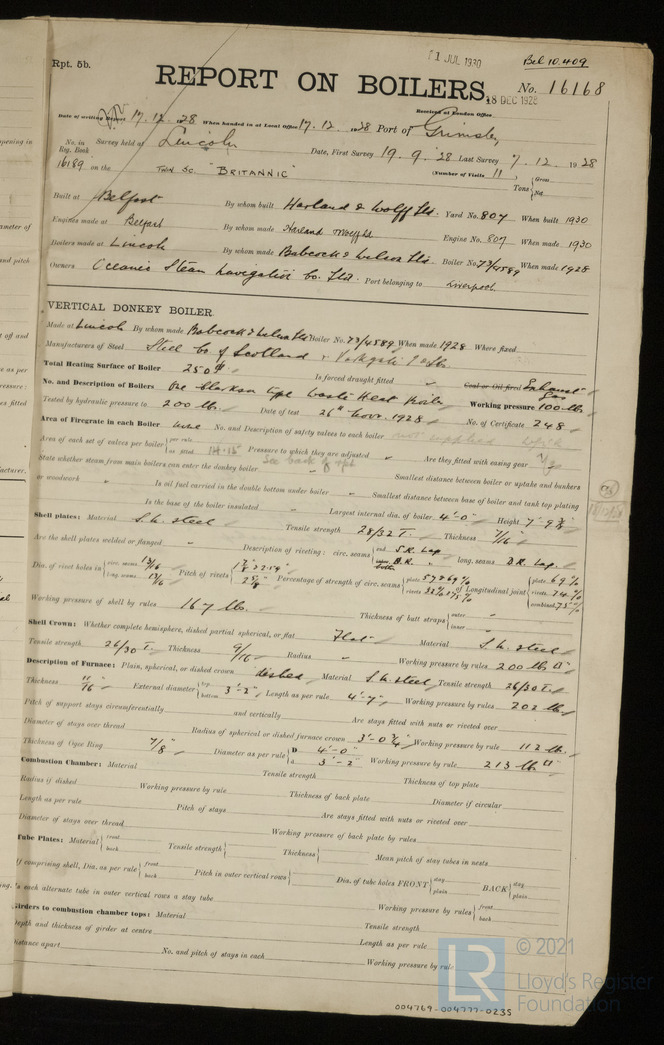 Rpt. 5b.
1 JUL 1930
Bel 10.409
REPORT ON BOILERS.
No. 16168
18 DEC 1928
Received at London Office
Date of writing Report 17.12.28 When handed in at Local Office 17.12.1928 Port of Grimsby
No. in Reg. Book Survey held at Lincoln Date, First Survey 19.9.28 Last Survey 7.12.1928
16189 on the Twin Sc. "BRITANNIC" (Number of Visits 11) Tons Gross Net
Built at Belfast By whom built Harland & Wolff Ltd. Yard No. 807 When built 1930
Engines made at Belfast By whom made Harland & Wolff Ltd Engine No. 807 When made 1930
Boilers made at Lincoln By whom made Babcock & Wilcox Ltd Boiler No. 73/4589 When made 1928
Owners Oceanic Steam Navigation Co. Ltd. Port belonging to Liverpool.
VERTICAL DONKEY BOILER.
Made at Lincoln By whom made Babcock & Wilcox Ltd Boiler No. 73/4589 When made 1928 Where fixed
Manufacturers of Steel Steel Co of Scotland &
Total Heating Surface of Boiler 250 Is forced draught fitted Coal or Oil fired Exhaust Gas
No. and Description of Boilers One Clarkson type Waste Heat Boiler Working pressure 100 lbs.
Tested by hydraulic pressure to 200 lb. Date of test 26th Novr. 1928 No. of Certificate 248
Area of Firegrate in each Boiler none No. and Description of safety valves to each boiler not supplied
Area of each set of valves per boiler per rule as fitted Pressure to which they are adjusted Are they fitted with easing gear
State whether steam from main boilers can enter the donkey boiler See back of rpt Smallest distance between boiler or uptake and bunkers
or woodwork Is oil fuel carried in the double bottom under boiler Smallest distance between base of boiler and tank top plating
Is the base of the boiler insulated Largest internal dia. of boiler 4'-0" Height 7'-9
Shell plates: Material S.M. steel Tensile strength 28/32 T. Thickness 7/16"
Are the shell plates welded or flanged Description of riveting: circ. seams end S.R. Lap long. seams D.R. Lap.
Dia. of rivet holes in circ. seams 13/16 long. seams 13/16 Pitch of rivets Percentage of strength of circ. seams plate rivets of Longitudinal joint plate 69% rivets combined
Working pressure of shell by rules 167 lbs. Thickness of butt straps outer inner
Shell Crown: Whether complete hemisphere, dished partial spherical, or flat Flat Material S.M. steel
Tensile strength 26/30 T. Thickness 9/16 Radius Working pressure by rules 200 lbs
Description of Furnace: Plain, spherical, or dished crown dished Material S.M. steel Tensile strength 26/30 T.
Thickness 11/16 External diameter top bottom 3'-2" Length as per rule 4'-7" Working pressure by rules 202 lbs.
Pitch of support stays circumferentially and vertically Are stays fitted with nuts or riveted over
Diameter of stays over thread Radius of spherical or dished furnace crown 3'-0 3/4" Working pressure by rule 112 lb.
Thickness of Ogee Ring 7/8" Diameter as per rule D 4'-0" d 3'-2" Working pressure by rule 213 lb
Combustion Chamber: Material Tensile strength Thickness of top plate
Radius if dished Working pressure by rule Thickness of back plate Diameter if circular
Length as per rule Pitch of stays Are stays fitted with nuts or riveted over
Diameter of stays over thread Working pressure of back plate by rules
Tube Plates: Material front back Tensile strength Thickness Mean pitch of stay tubes in nests
If comprising shell, Dia. as per rule front back Pitch in outer vertical rows Dia. of tube holes FRONT stay plain BACK stay plain
Is each alternate tube in outer vertical rows a stay tube Working pressure by rules front back
Girders to combustion chamber tops: Material Tensile strength
Depth and thickness of girder at centre Length as per rule
Distance apart No. and pitch of stays in each Working pressure by rule
LR
© 2021
Lloyd's Register
Foundation
004769-004777-0235